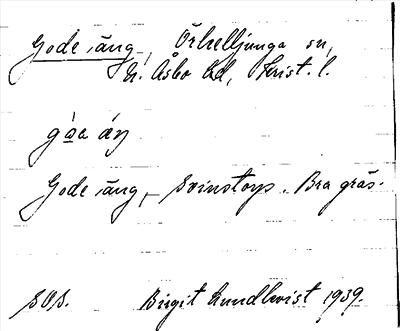 Gode äng, Örkelljunga sn,
N. Åsbo hd, Krist. l.
Gode äng, Svinstorp. Bra gräs.
SOS. Birgit Lundkvist 1939.